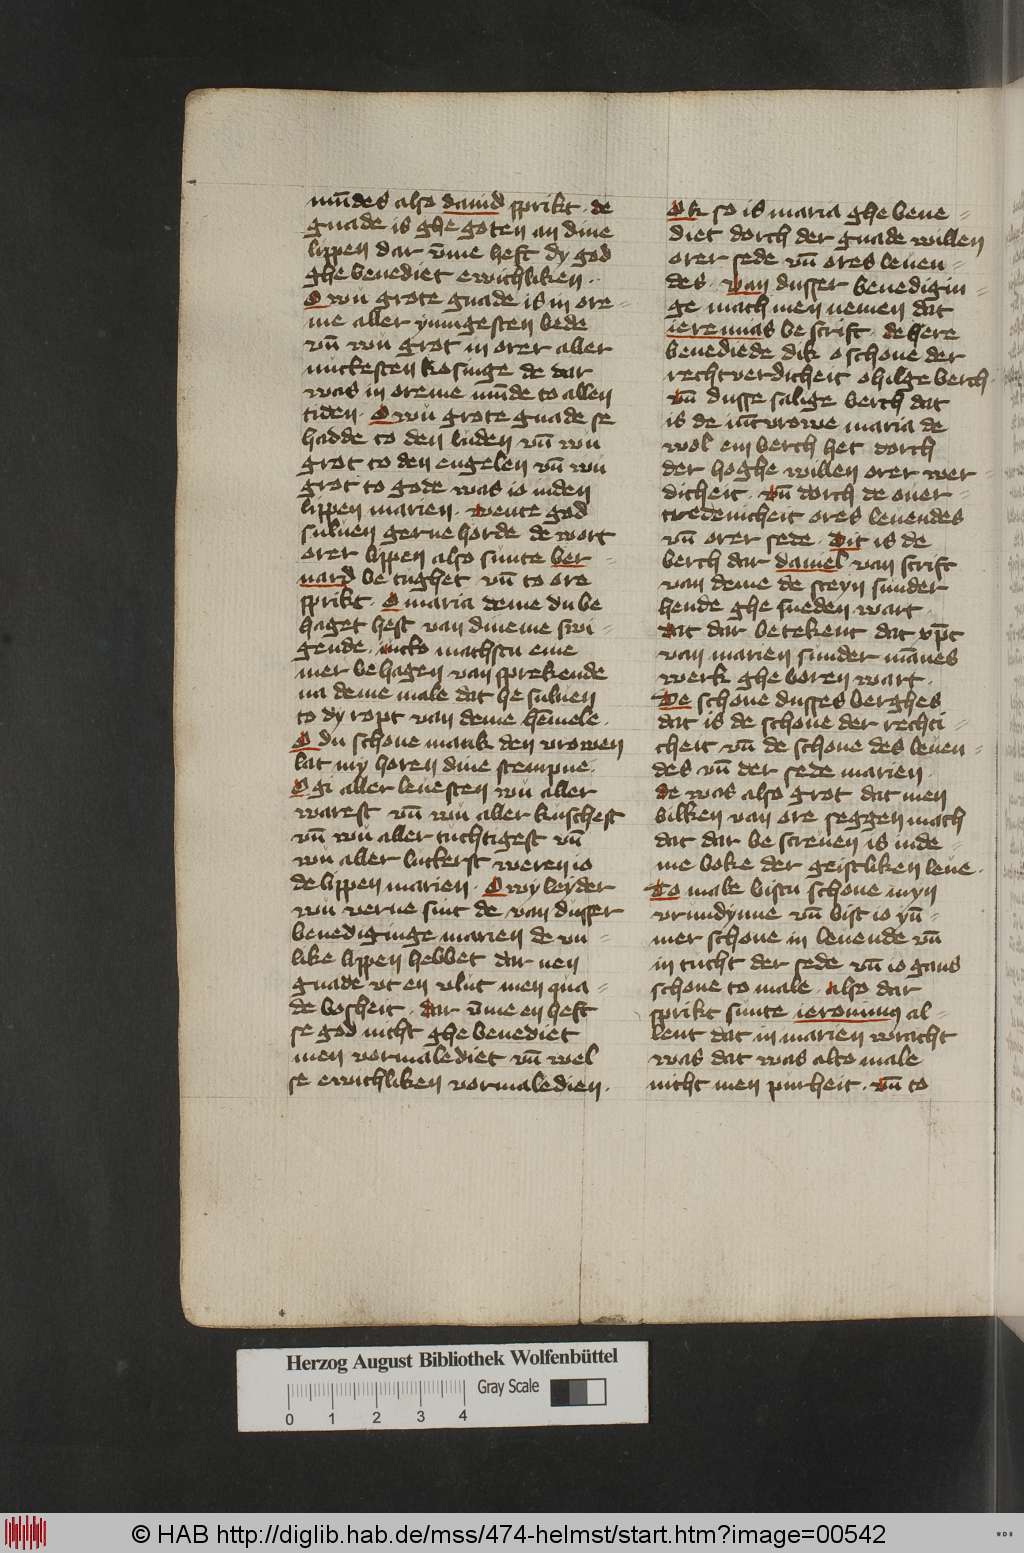 mu̅des also dauid sprikt · de
gnade is ghe goten an dine
lippen dar v̅me heft dy god
ghe benediet ewichliken ·
O wu grote gnade is in ore-
me aller ynnigesten bede
vn̅ wu grot in orer aller
nuckesten kosinge de dar
was in oreme mu̅de to allen
tiden · O wu grote gnade se
hadde to den luden vn̅ wu
grot to den engelen vn̅ wu
grot to gode was io in den
lippen marien · wente god
suluen gerne horde de wort
orer lippen also sunte ber-
nard be tughet vn̅ to ore
sprikt · O maria deme du be
haget hest van dineme swi-
gende · nicko machstu eme
mer be hagen van sprekende
na deme male dat he suluen
to dy ropt van deme he̅mele ·
O du schone mank den vrowen
lat my horen dine stempne ·
O gi aller leuesten wu aller
warest vn̅ wu aller kuschest
vn̅ wu aller tuchtigest vn̅
wu aller luckerst weren io
de lippen marien · O wy leyder
wu verne sint de van dusser
benediginge marien de vn-
like lippen hebbet dar nen
gnade vt en vlut men qua-
de bosheit · dar v̅me en heft
se god nicht ghe benediet
men vormalediet vn̅ wel
se ewichliken vormaledien ·
Ok so is maria ghe bene-
diet dorch der gnade willen
orer sede vn̅ ores leuen-
des · van dusser benedigin-
ge mach men nemen dat
ieremias be scrift · de here
benediede dik o schone der
rechtverdicheit o hilge berch ·
vn̅ dusse salige berch dat
is de iu̅cvrowe maria de
wol ein berch het dorch
der hoghe willen orer wer-
dicheit · vn̅ dorch de ouer-
tredenicheit ores leuendes
vn̅ orer sede · Dit is de
berch dar daniel van scrift
van deme de steyn sunder
hende ghe sneden wart ·
dat dar be tekent dat xp̅c
van marien sunder ma̅nes
werk ghe boren wart ·
De schone dusses berghes
dat is de schone der rechti-
cheit vn̅ de schone des leuen-
des vn̅ der sede marien ·
de was also grot dat men
billken van ore seggen mach
dat dar be screuen is in de-
me boke der geistliken leue ·
To male bistu schone myn
vrundynne vn̅ bist io yn̅-
mer schone in leuende vn̅
in tucht der sede vn̅ io gans
schone to male · also dar
sprikt sunte ieronimus al-
lent dat in marien wracht
was dat was alto male
nicht men purheit · vn̅ to
Herzog August Bibliothek Wolfenbüttel
Gray Scale
0 1 2 3 4
© HAB http://diglib.hab.de/mss/474-helmst/start.htm?image=00542
WDB